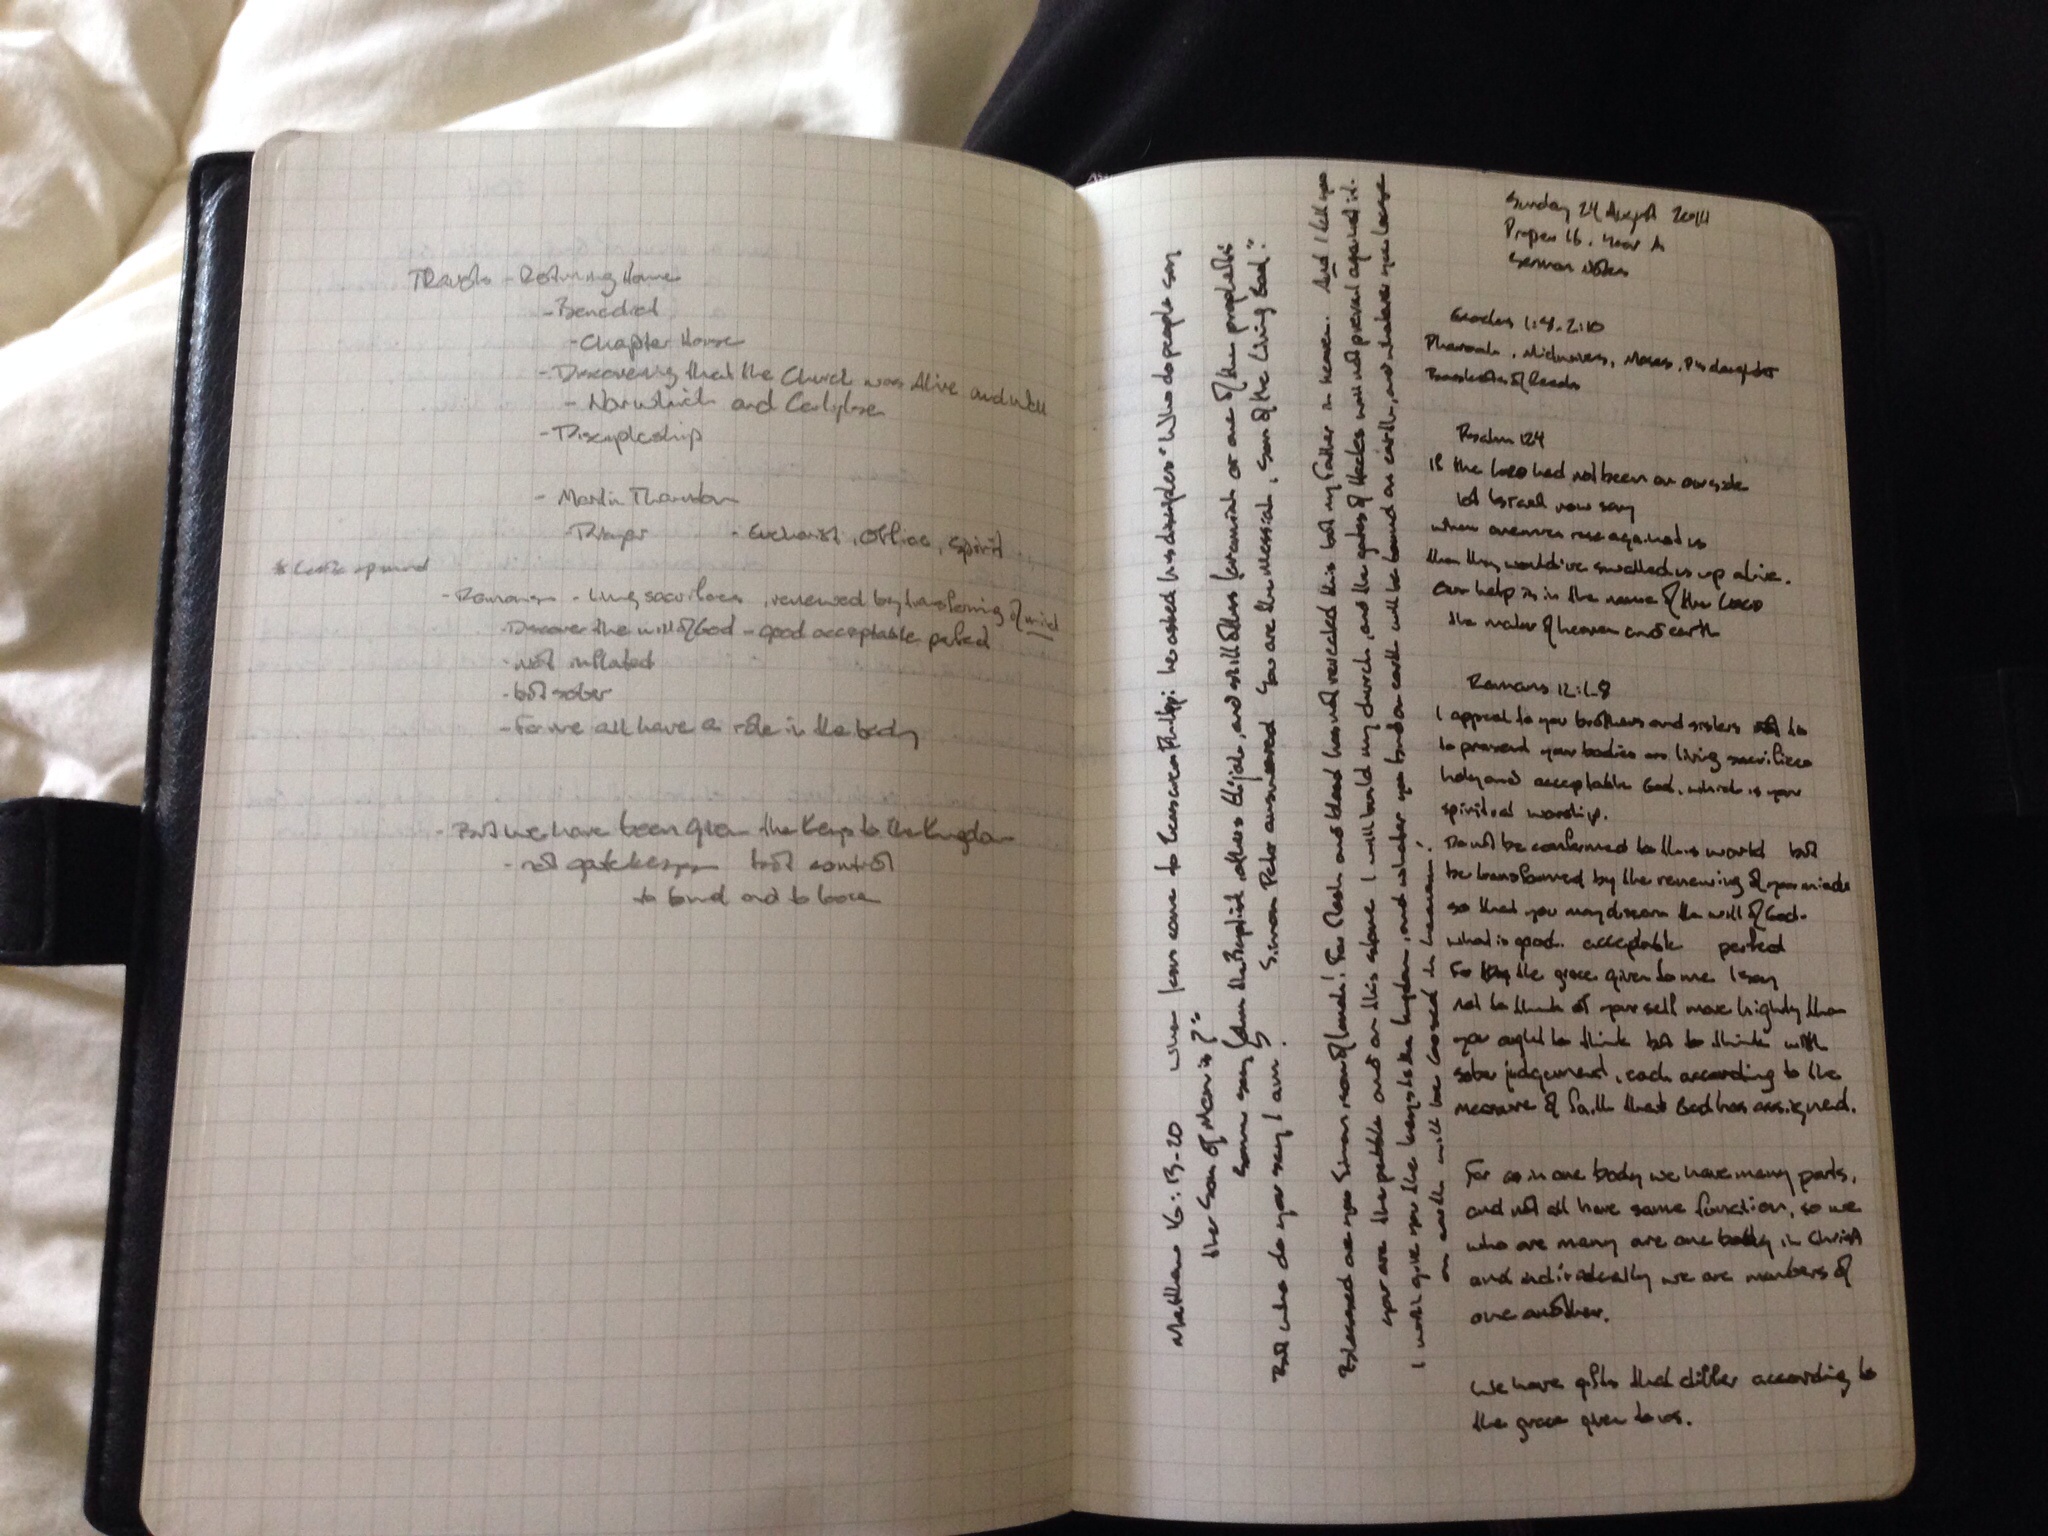 Thoughts - Returning Home
- Benedict
- Chapter House
- Discovering that the Church was Alive and Well
- Norwich and
- Discipleship
- Martin Thornton
- Prayer - Eucharist, Office, Spirit
*
- Romans - living sacrifices, renewed by transforming of mind
- Discover the will of God - good acceptable perfect
- not inflated
- but sober
- For we all have a role in the body
- But we have been given the Keys to the Kingdom
- not gatekeeper but control
to bind and to loose
Matthew 16:13-20 when Jesus came to Caesarea Philippi: he asked his disciples "Who do people say
that Son of Man is?"
Some say John the Baptist, others Elijah, and still others Jeremiah or one of the prophets
But who do you say I am? Simon Peter answered You are the Messiah, Son of the Living God."
Blessed are you Simon son of Jonah! For flesh and blood has not revealed this but my Father in heaven. And I tell you
your are the pebble and on this stone I will build my church, and the gates of Hades will not prevail against it.
I will give you the keys to the kingdom, and whatever you bind on earth will be bound on earth, and whatever you loose
on earth will be loosed in heaven."
Sunday 24 August 2014
Proper 16, Year A
Sermon Notes
Exodus 1:8-2:10
Pharaoh, Midwives, Moses, P's daughter
Basket of Reeds
Psalm 124
If the LORD had not been on our side
let Israel now say
when enemies rose against us
then they would've swalled us up alive.
Our help is in the name of the LORD
the maker of heaven and earth
Romans 12:1-8
I appeal to you brothers and sisters to
to present your bodies as living sacrifices
holy and acceptable God, which is your
spiritual worship.
Do not be conformed to this world but
be transformed by the renewing of your minds
so that you may discern the will of God -
what is good. acceptable perfect
For by the grace given to me I say
not to think of yourself more highly than
you ought to think but to think with
sober judgement, each according to the
measure of faith that God has assigned.
For as in one body we have many parts,
and not all have same function, so we
who are many are one body in Christ
and individually we are members of
one another.
We have gifts that differ according to
the grace given to us.